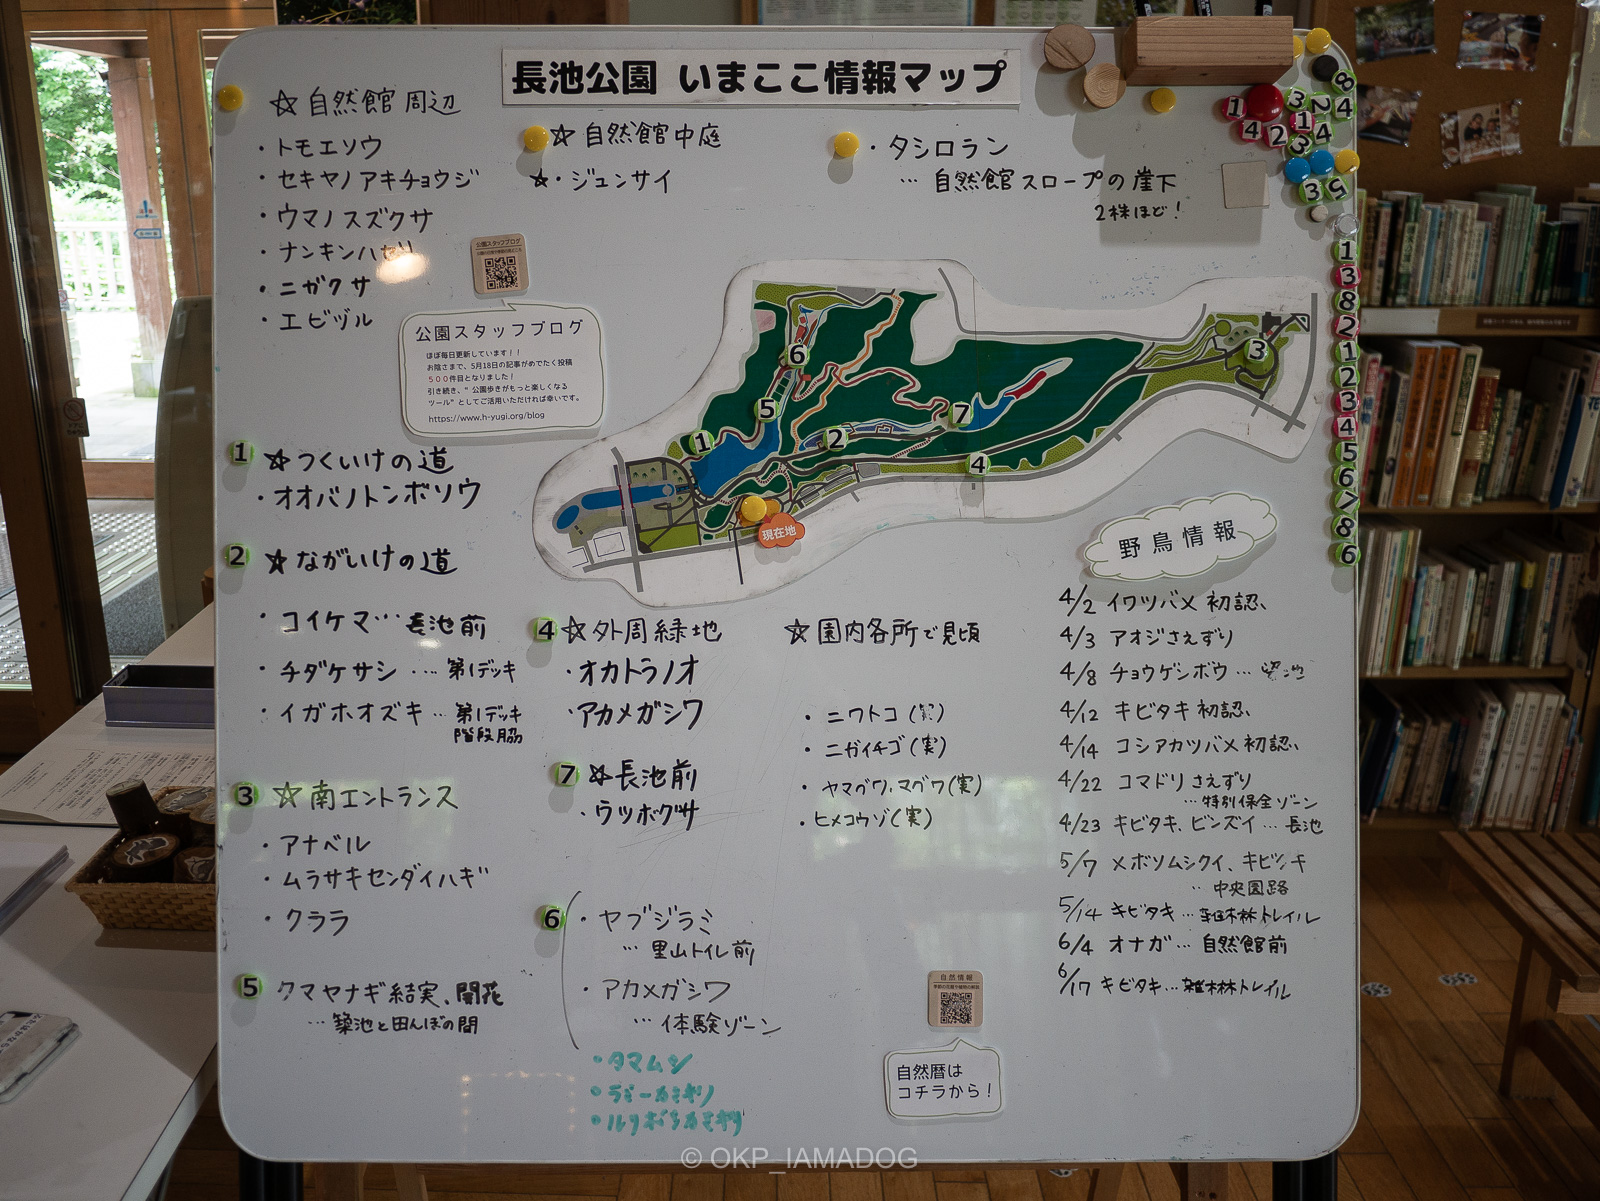 長池公園 いまここ情報マップ
☆自然館周辺
・トモエソウ
・セキヤノアキチョウジ
・ウマノスズクサ
・ナンキンハゼ
・ニガクサ
・エビヅル
☆自然館中庭
☆・ジュンサイ
・タシロラン
… 自然館スロープの崖下
2株ほど！
公園スタッフブログ
公園スタッフブログ
ほぼ毎日更新しています！！
お陰さまで、5月18日の記事がめでたく投稿
５００件目となりました！
引き続き、“公園歩きがもっと楽しくなる
ツール”としてご活用いただければ幸いです。
https://www.h-yugi.org/blog
6
5
1
2
7
4
3
現在地
1 ☆つくいけの道
・オオバノトンボソウ
2 ☆ながいけの道
・コイケマ…長池前
・チダケサシ …. 第1デッキ
・イガホオズキ … 第1デッキ
階段脇
3 ☆南エントランス
・アナベル
・ムラサキセンダイハギ
・クララ
5 クマヤナギ結実、開花
… 築池と田んぼの間
4 ☆外周緑地
・オカトラノオ
・アカメガシワ
7 ☆長池前
・ウツボグサ
6 ・ヤブジラミ
… 里山トイレ前
・アカメガシワ
… 体験ゾーン
・タマムシ
・ラミーカミキリ
・ルリボシカミキリ
☆園内各所で見頃
・ニワトコ（実）
・ニガイチゴ（実）
・ヤマグワ、マグワ（実）
・ヒメコウゾ（実）
野鳥情報
4/2 イワツバメ 初認、
4/3 アオジさえずり
4/8 チョウゲンボウ …
4/12 キビタキ 初認、
4/14 コシアカツバメ初認、
4/22 コマドリさえずり
… 特別保全ゾーン
4/23 キビタキ、ビンズイ … 長池
5/7 メボソムシクイ、キビタキ
… 中央園路
5/14 キビタキ … 雑木林トレイル
6/4 オナガ … 自然館前
6/17 キビタキ … 雑木林トレイル
自然情報
自然暦は
コチラから！
1
4
2
3
2
1
4
3
8
4
3
5
1
3
8
2
1
2
3
4
5
6
7
8
6
© OKP_IAMADOG